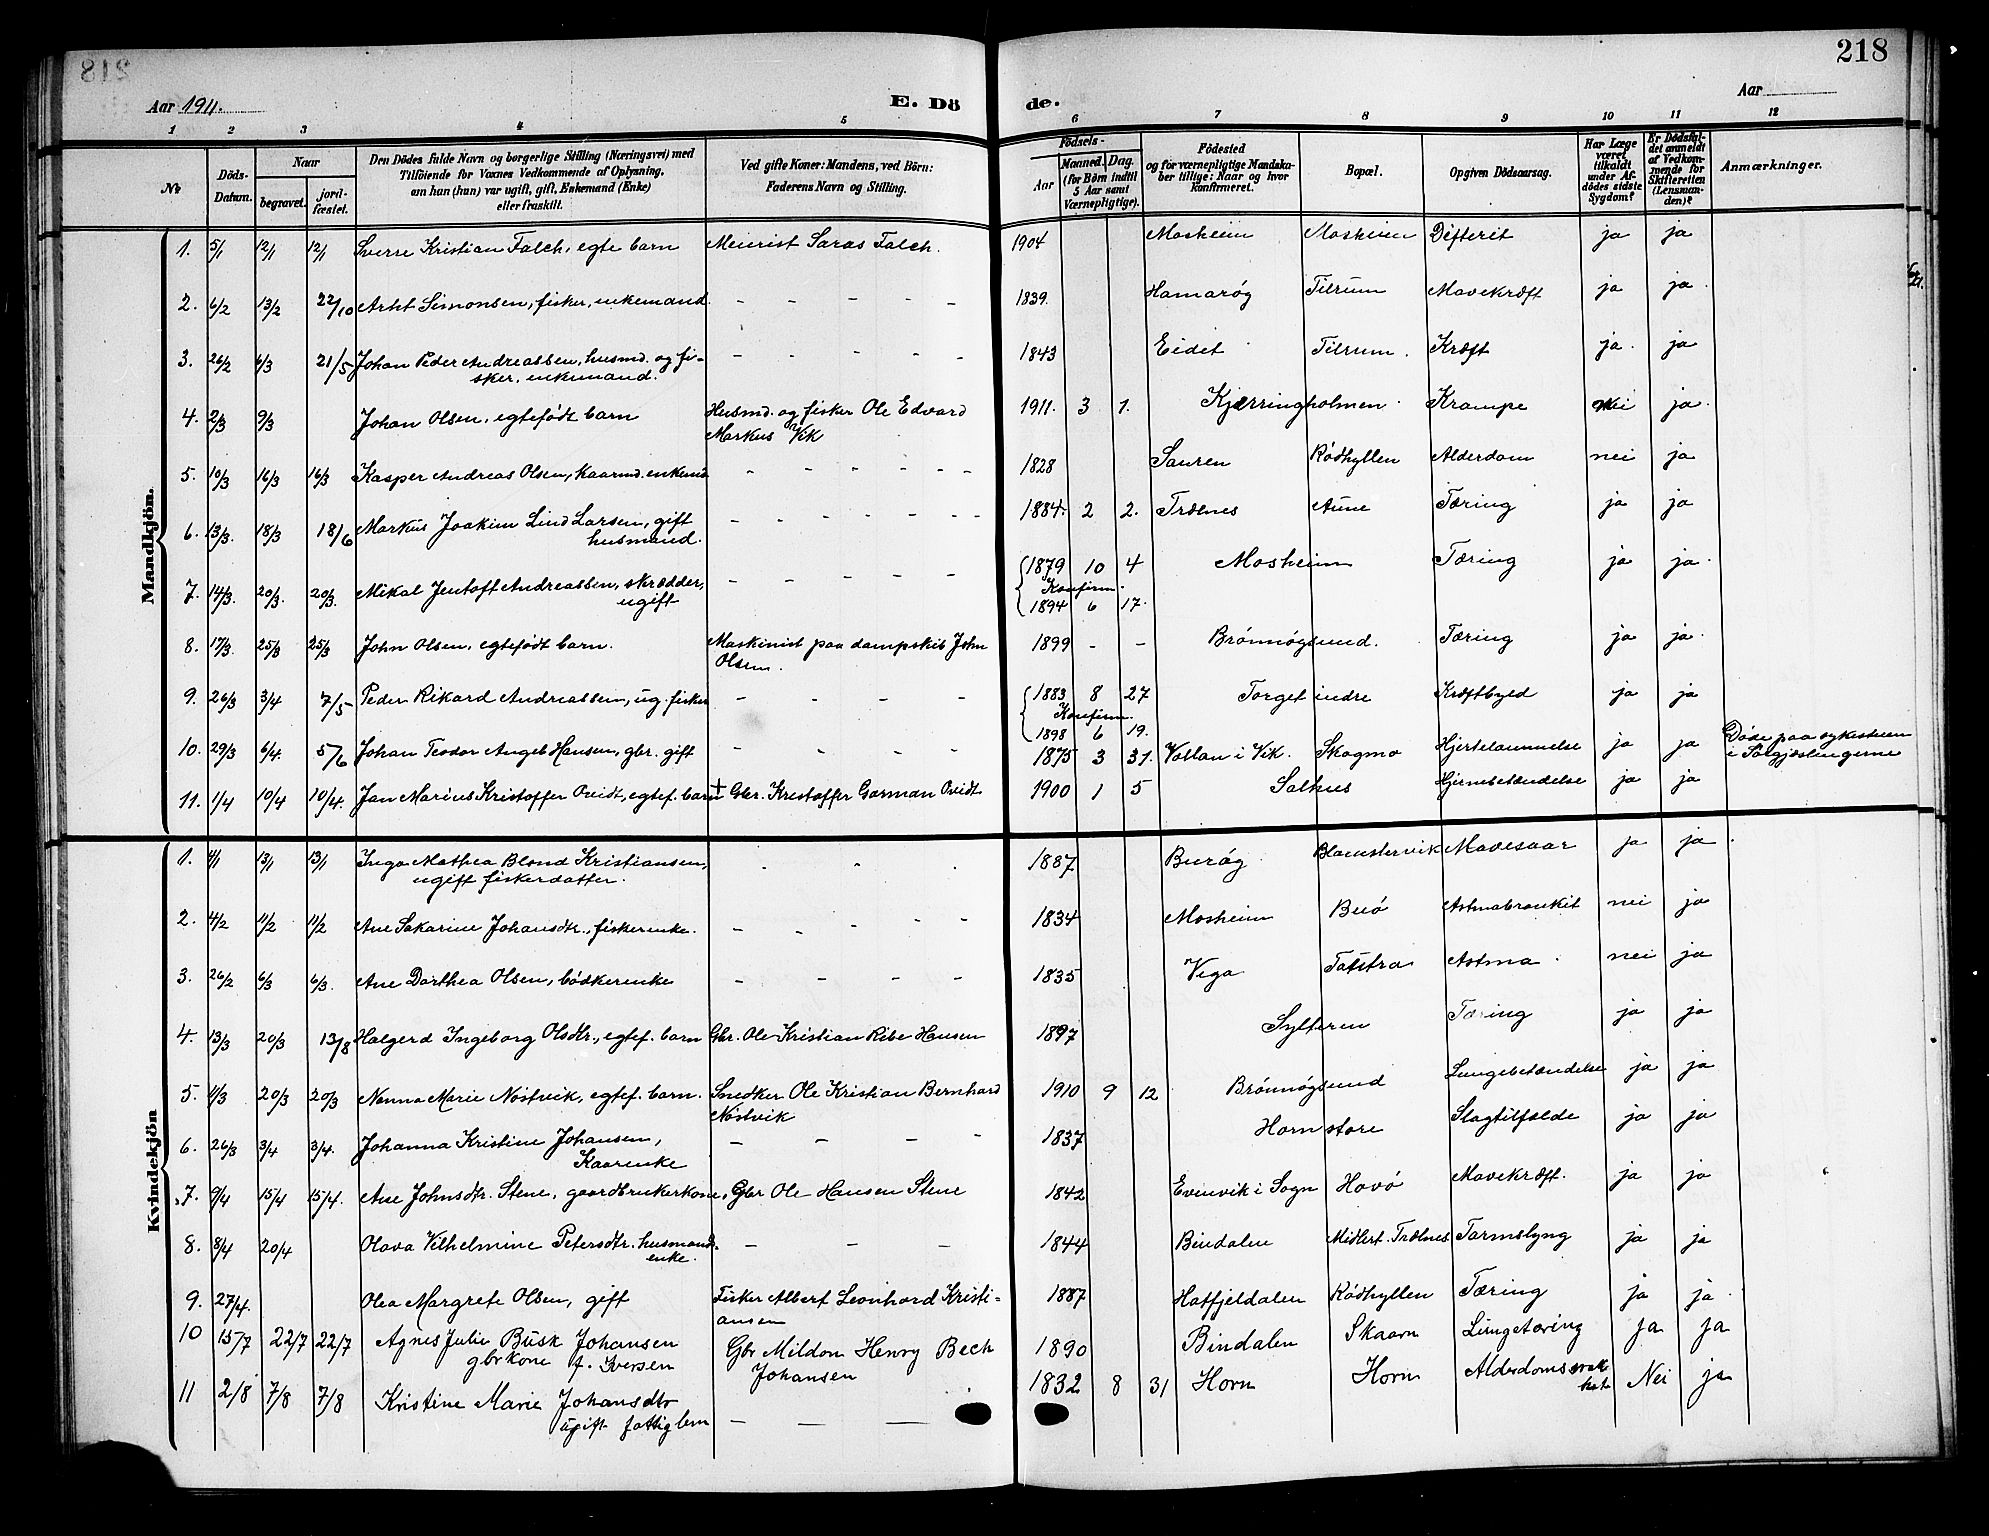 218
Aar 1911.
E. Dö de.
Aar
1 2 3 4 5 6 7 8 9 10 11 12
No
Döds-Datum.
Naar
begravet.
jordfæstet.
Den Dödes fulde Navn og borgerlige Stilling (Næringsvei) med
Tilföiende for Voxnes Vedkommende af Oplysning,
om han (hun) var ugift, gift, Enkemand (Enke)
eller fraskilt.
Ved gifte Koner: Mandens, ved Börn:
Faderens Navn og Stilling.
Födsels-
Aar
Maaned. Dag.
(for Börn indtil
5 Aar samt
Værnepligtige).
Födested
og for værnepligtige Mandskaber tillige: Naar og hvor
konfirmeret.
Bopæl.
Opgiven Dödsaarsag.
Har Læge
været
tilkaldt
under Afdödes sidste
Sygdom?
Er Dödsfaldet anmeldt
af Vedkommende for
Skifteretten
(Lensmanden)?
Anmærkninger.
Mandkjön.
1. 5/1 12/1 12/1 Sverre Kristian Falch, egte barn Meierist Saras Falch. 1904 Mosheim Mosheim Difterit ja ja
2. 6/2 13/2 22/10 Arnt Simonsen, fisker, enkemand – – – – – 1839. Hamarøg Tilrum Mavekræft ja ja.
3. 26/2 6/3 21/5 Johan Peder Andreassen, husmd. og fi-
sker, enkemand. – – – – – 1843 Eidet Tilrum. Kræft ja. ja
4. 2/3 9/3 Johan Olsen, egtefødt barn Husmd. og fisker Ole Edvard
Markus Vik 1911. 3 1. Kjærringholmen. Krampe nei ja.
5. 10/3 16/3 16/3 Kasper Andreas Olsen, kaarmd. enkemd – – – – – – 1828 Sauren Rødhyllen Alderdom nei ja
6. 13/3. 18/3 18/6 Markus Joakim Lind Larsen, gift
husmand. – – – – – – 1884. 2 2. Trælnes Aune Tæring ja ja
7. 14/3. 20/3. 20/3. Mikal Jentoft Andreassen, skrædder,
ugift – – – – – 1879 10 4 Mosheim Tæring ja ja.
Konfirm.
1894 6 17.
8. 17/3. 25/3 25/3 John Olsen, egtefødt barn. Maskinist paa dampskib John
Olsen. 1899 – – Brønnøysund. Tæring ja ja.
9. 26/3 3/4 7/5 Peder Rikard Andreassen, ug. fisker – – – – 1883 8 27 Torget indre Kræftbyld ja ja
Konfirm.
1898 6 19.
10. 29/3 6/4. 5/6 Johan Teodor Angel Hansen, gbr. gift – – – – 1875 3 31. Vollan i Vik. Skogmo Hjertelammelse ja ja Døde paa sykestuen
i Sørgjæslingerne
11. 1/4 10/4 10/4. Jan Marius Kristoffer Qvidt, egtef. barn + Gbr. Kristoffer Garman Qvidt 1900 1 5 Salhus Hjernebetændelse ja ja
Kvindekjön
1. 4/1 13/1 13/1 Inga Mathea Blond Kristiansen,
ugift fiskerdatter. 1887 Burøg Blomstervik Mavesaar ja ja
2. 4/2 11/2 11/2 Ane Sakarine Johansdtr., fiskerenke. – – – – – 1834 Mosheim Buø Astmabronkit nei ja
3. 26/2 6/3 6/3. Ane Dorthea Olsen, bødkerenke – – – – 1835 Vega Tatstra Astma. nei ja
4. 13/3 20/3 13/8 Halgerd Ingeborg Olsdtr., egtef. barn Gbr. Ole Kristian Ribe Hansen 1897 Sylteren Tæring ja ja
5. 11/3 20/3 20/3 Nanna Marie Nøstvik, egtef. barn. Snedker Ole Kristian Bernhard
Nøstvik 1910 9 12 Brønnøysund Lungebetændelse ja ja
6. 26/3 3/4 3/4. Johanna Kristine Johansen,
Kaarenke – – – – 1837 Horn store Slagtilfælde ja ja
7. 9/4 15/4 15/4. Ane Johnsdtr. Stene, gaardbrukerkone, Gbr Ole Hansen Stene 1842 Evenvik i Sogn Havø Mavekræft. ja ja
8. 8/4 20/4 Olava Vilhelmine Petersdtr. husmands-
enke. – – – 1844 Bindalen Midlert. Trælnes Tarmslyng ja ja
9. 27/4. Olea Margrete Olsen, gift Fisker Albert Leonhard Kristi-
ansen 1887 Hatfjeldalen Rødhyllen Tæring ja ja.
10 15/7 22/7 22/7 Agnes Julie Busk Johansen
gbrkone f. Iversen Gbr Mildon Henry Bech
Johansen 1890 Bindalen Skaarn Lungetæring ja ja
11 2/8 7/8 7/8 Kristine Marie Johansdtr
ugift fattiglem – – – – 1832 8 31 Horn Horn Alderdomssvak
het Nei ja